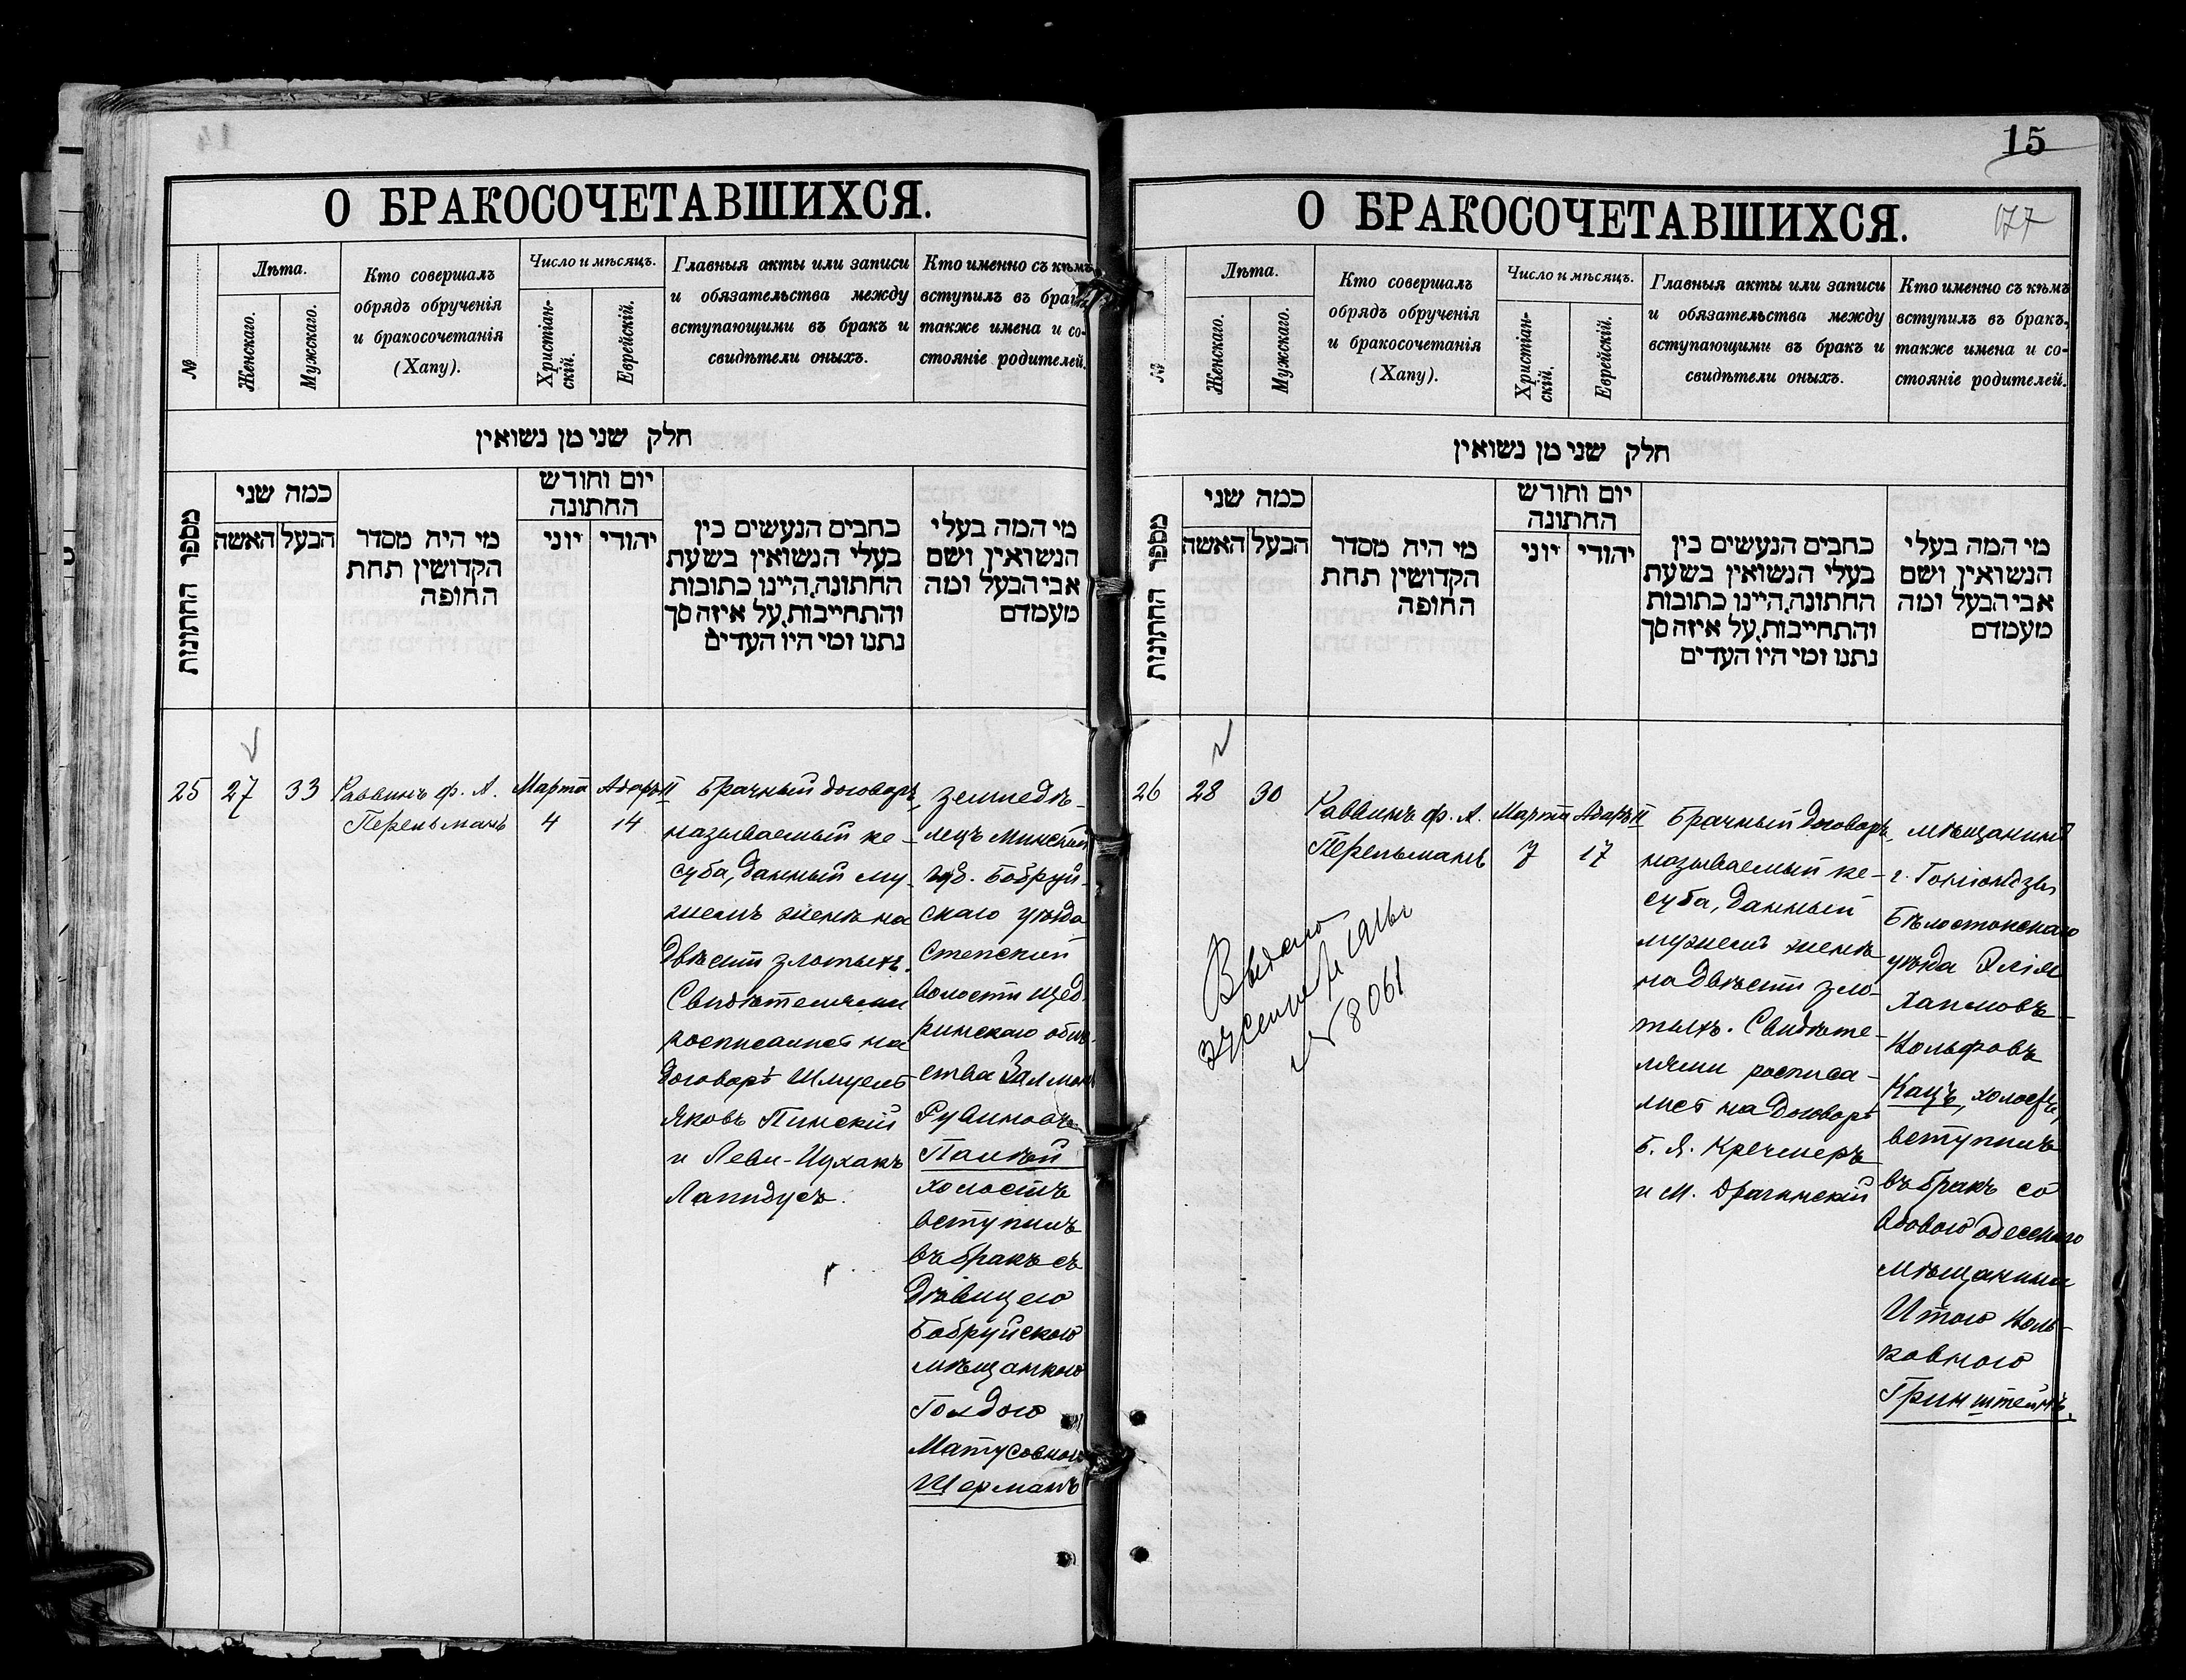 14
О БРАКОСОЧЕТАВШИХСЯ.
№
Лѣта.
Женскаго.
Мужскаго.
Кто совершалъ
обрядъ обрученія
и бракосочетанія
(Хапу).
Число и мѣсяцъ.
Христіан-
скій.
Еврейскій.
Главныя акты или записи
и обязательства между
вступающими въ брак и
свидѣтели оныхъ.
Кто именно съ кѣмъ
вступилъ въ бракъ,
также имена и со-
стояніе родителей.
חלק שני מן נשואין
מספר החתונות
כמה שני
האשה
הבעל
מי היה מסדר
הקדושין תחת
החופה
יום וחודש
החתונה
יוני
יהודי
כתבים הנעשים בין
בעלי הנשואין בשעת
החתונה, היינו כתובות
והתחייבות, על איזה סך
נתנו ומי היו העדים
מי המה בעלי
הנשואין ושם
אבי הבעל ומה
מעמדם
25
27
33
Раввинъ ф. А.
Перельманъ
Марта
4
Адаръ II
14
Брачный договоръ,
называемый ке-
суба, данный му-
жемъ женѣ на
двѣсти злотыхъ.
Свидѣтелями
росписались на
договорѣ Шмуелъ
Яковъ Пинскій
и Леви-Ицхакъ
Лапидусъ.
Земледѣ-
лецъ Минской
губ. Бобруй-
скаго уѣзда
Степской
волости Щед-
ринскаго обще-
ства Залманъ
Рувиновъ
холостъ
вступилъ
въ бракъ съ
дѣвицею
Бобруйскою
мѣщанкою
Голдою
Матусовною
Шерманъ
15
177
О БРАКОСОЧЕТАВШИХСЯ.
№
Лѣта.
Женскаго.
Мужскаго.
Кто совершалъ
обрядъ обрученія
и бракосочетанія
(Хапу).
Число и мѣсяцъ.
Христіан-
скій.
Еврейскій.
Главныя акты или записи
и обязательства между
вступающими въ брак и
свидѣтели оныхъ.
Кто именно съ кѣмъ
вступилъ въ бракъ,
также имена и со-
стояніе родителей.
חלק שני מן נשואין
מספר החתונות
כמה שני
האשה
הבעל
מי היה מסדר
הקדושין תחת
החופה
יום וחודש
החתונה
יוני
יהודי
כתבים הנעשים בין
בעלי הנשואין בשעת
החתונה, היינו כתובות
והתחייבות, על איזה סך
נתנו ומי היו העדים
מי המה בעלי
הנשואין ושם
אבי הבעל ומה
מעמדם
26
28
30
Раввинъ ф. А.
Перельманъ
Марта
7
Адаръ II
17
Выдано
№ 8061
Брачный договоръ,
называемый ке-
суба, данный
мужемъ женѣ
на двѣсти зло-
тыхъ. Свидѣте-
лями росписа-
лись на договорѣ
Б. Я. Кречмеръ
и М. Драгинскій
мѣщанинъ
г. Гоніондзы
Бѣлостокскаго
уѣзда Элія
Хаимовъ-
Вольфовъ
Кацъ, холостъ,
вступилъ
въ бракъ со
вдовою одесскою
мѣщанкою
Итою Воль-
ковною
Гринштейнъ.